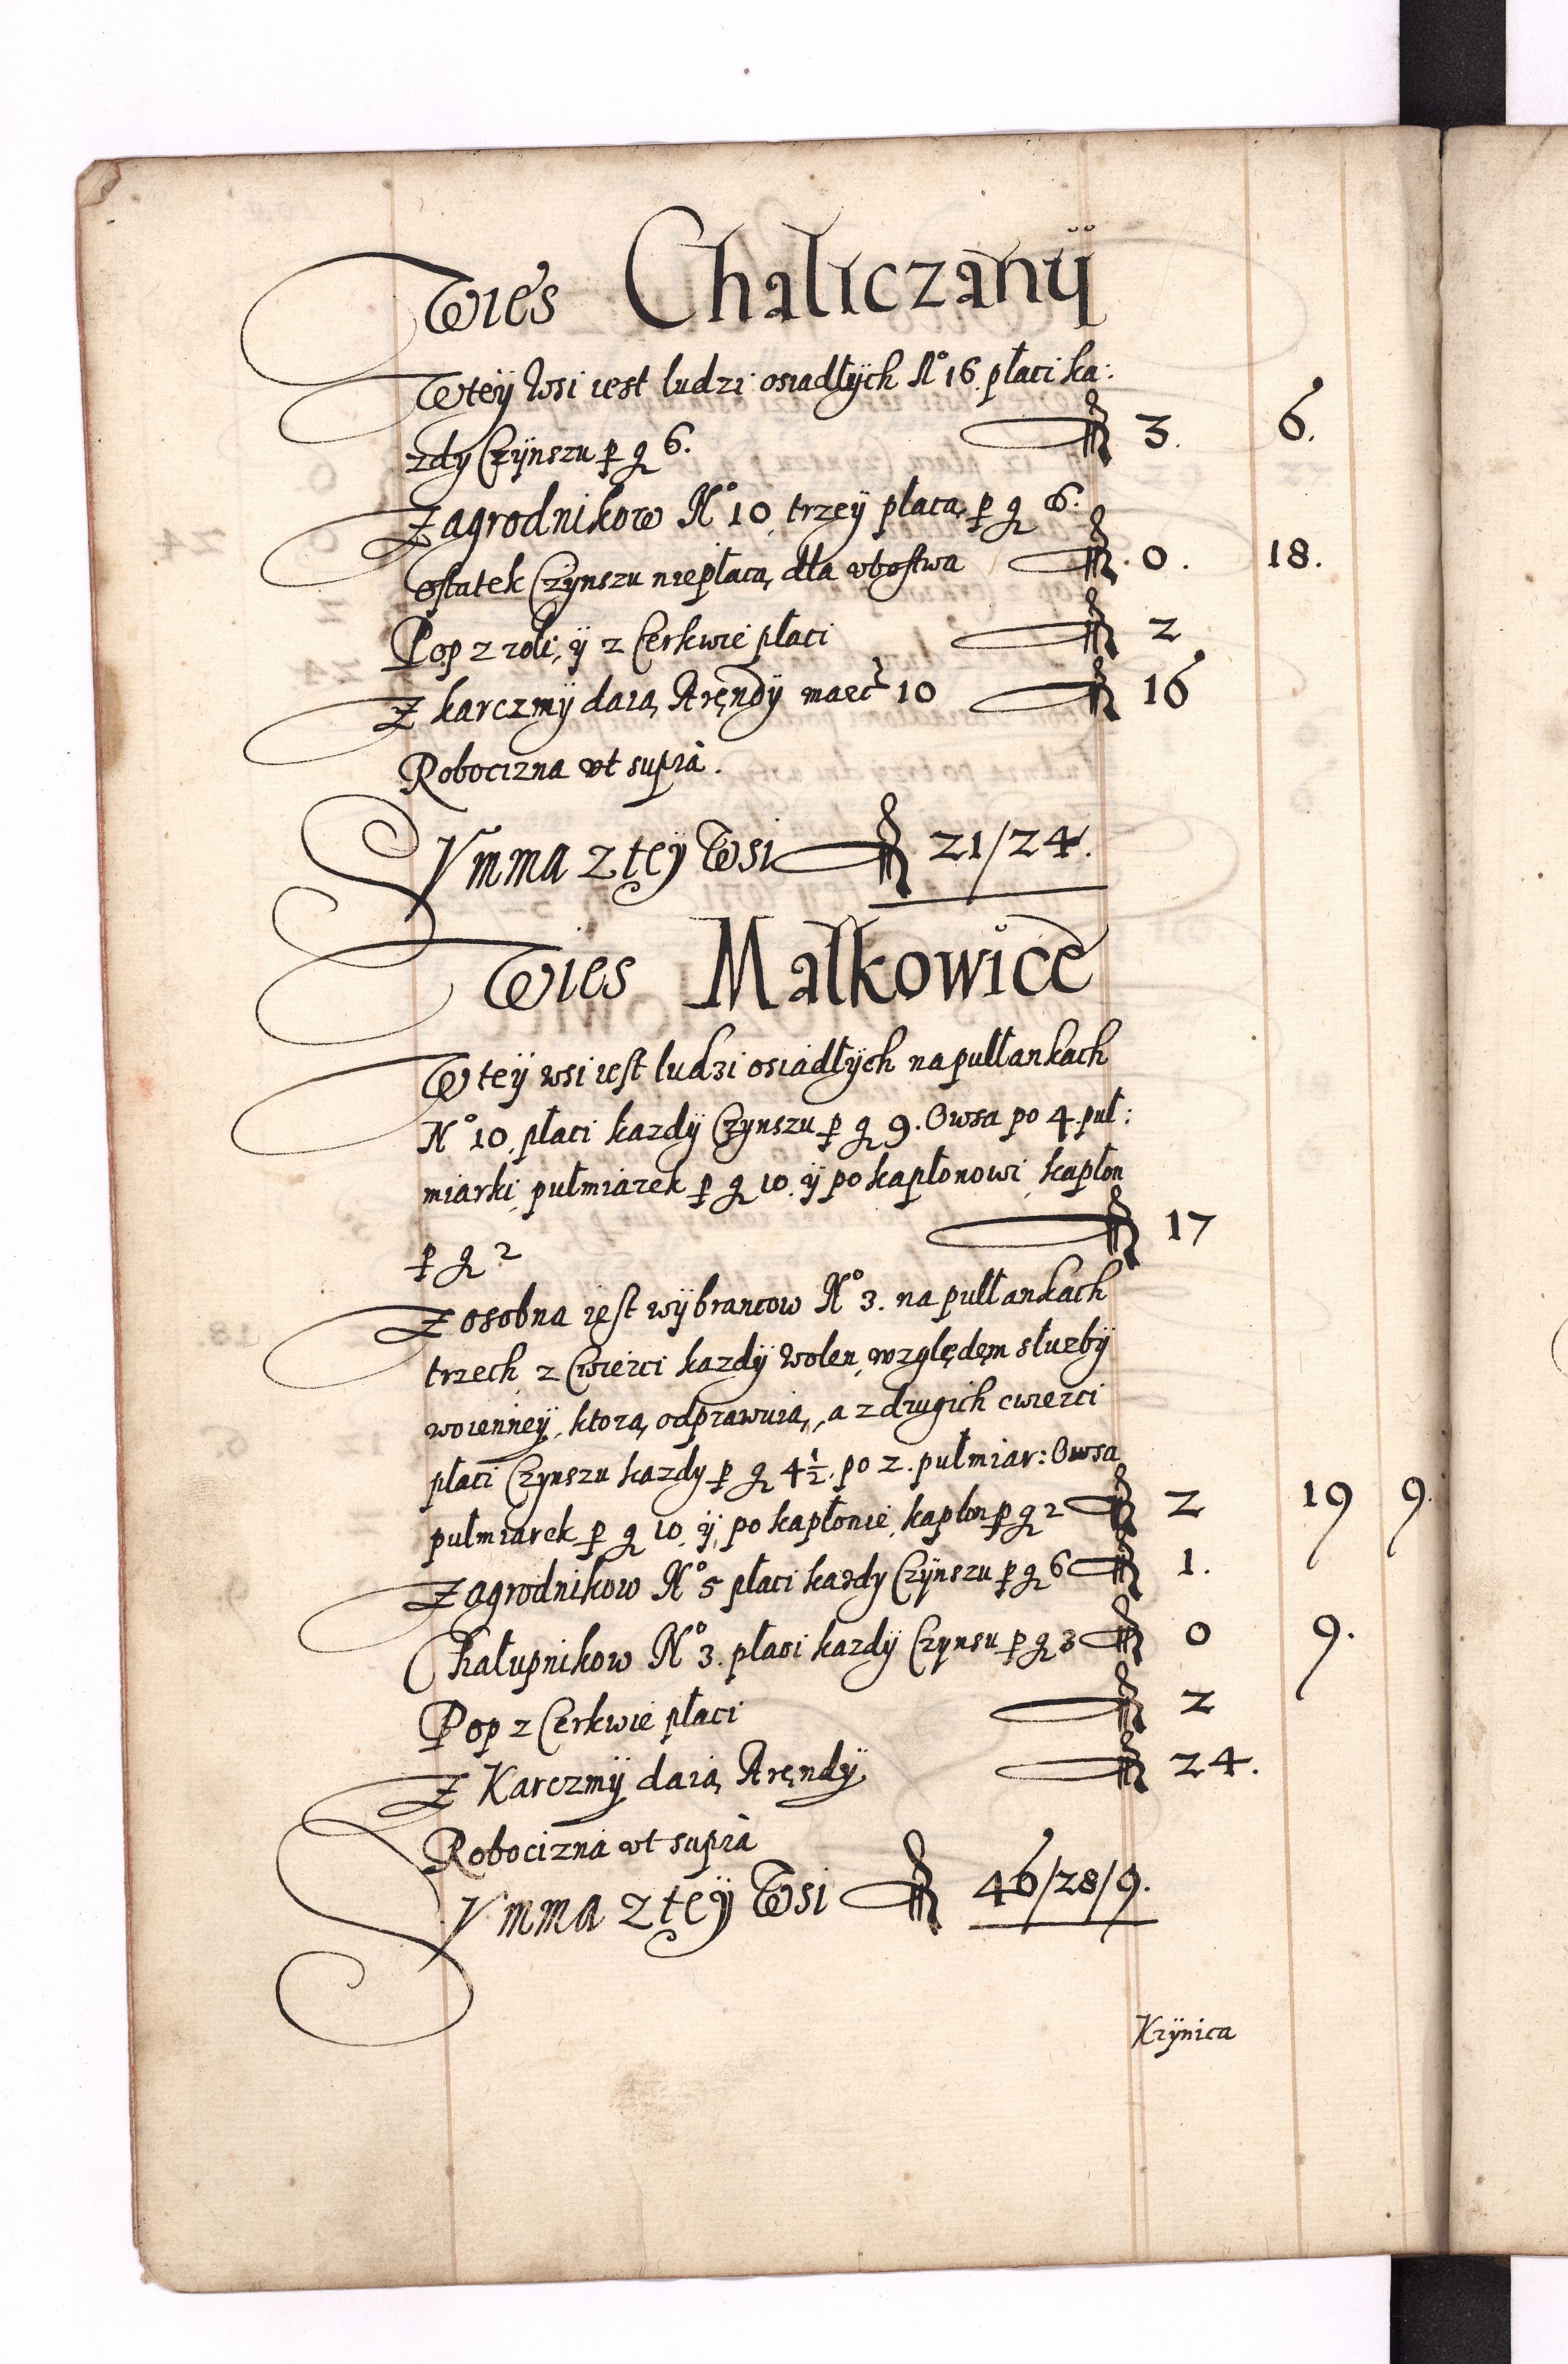 Wies Chaliczanÿ
W teÿ Wsi iest ludzi osiadłÿch No 16. płaci ka:
zdy Czÿnszu p g 6. fl 3. 6.
Zagrodnikow No 10, trzeÿ płacą p g 6.
ostatek Czynszu niepłacą dla vbostwa fl 0. 18.
Pop z roli, ÿ z Cerkwie płaci fl 2
Z karczmÿ daią Aręndÿ marc 10 fl 16
Robocizna vt supra.
Summa z teÿ Wsi fl 21/24.
Wies Małkowice
W teÿ wsi iest ludzi osiadłÿch na pułłankach
No 10. płaci kazdÿ Czynszu p g 9. Owsa po 4. puł:
miarki, pułmiarek p g 10. ÿ po kapłonowi, kapłon
p g 2 fl 17
Z osobna iest wÿbrancow No 3. na pułłankach
trzech, z Cwierci kazdÿ wolen, względęm słuzbÿ
woienneÿ, ktorą odprawuią, a z drugich cwierci
płaci Czynszu kazdy p g 4½. po 2. pułmiar: Owsa
pułmiarek p g 10. ÿ po kapłonie, kapłon p g 2 fl 2 19 9.
Zagrodnikow No 5 płaci kazdy Czÿnszu p g 6 fl 1.
Chałupnikow No 3. płaci kazdÿ Czynsu p g 3 fl 0 9.
Pop z Cerkwie płaci fl 2
Z Karczmÿ daią Aręndÿ fl 24.
Robocizna vt supra
Summa z teÿ Wsi fl 46/28/9.
Krÿnica